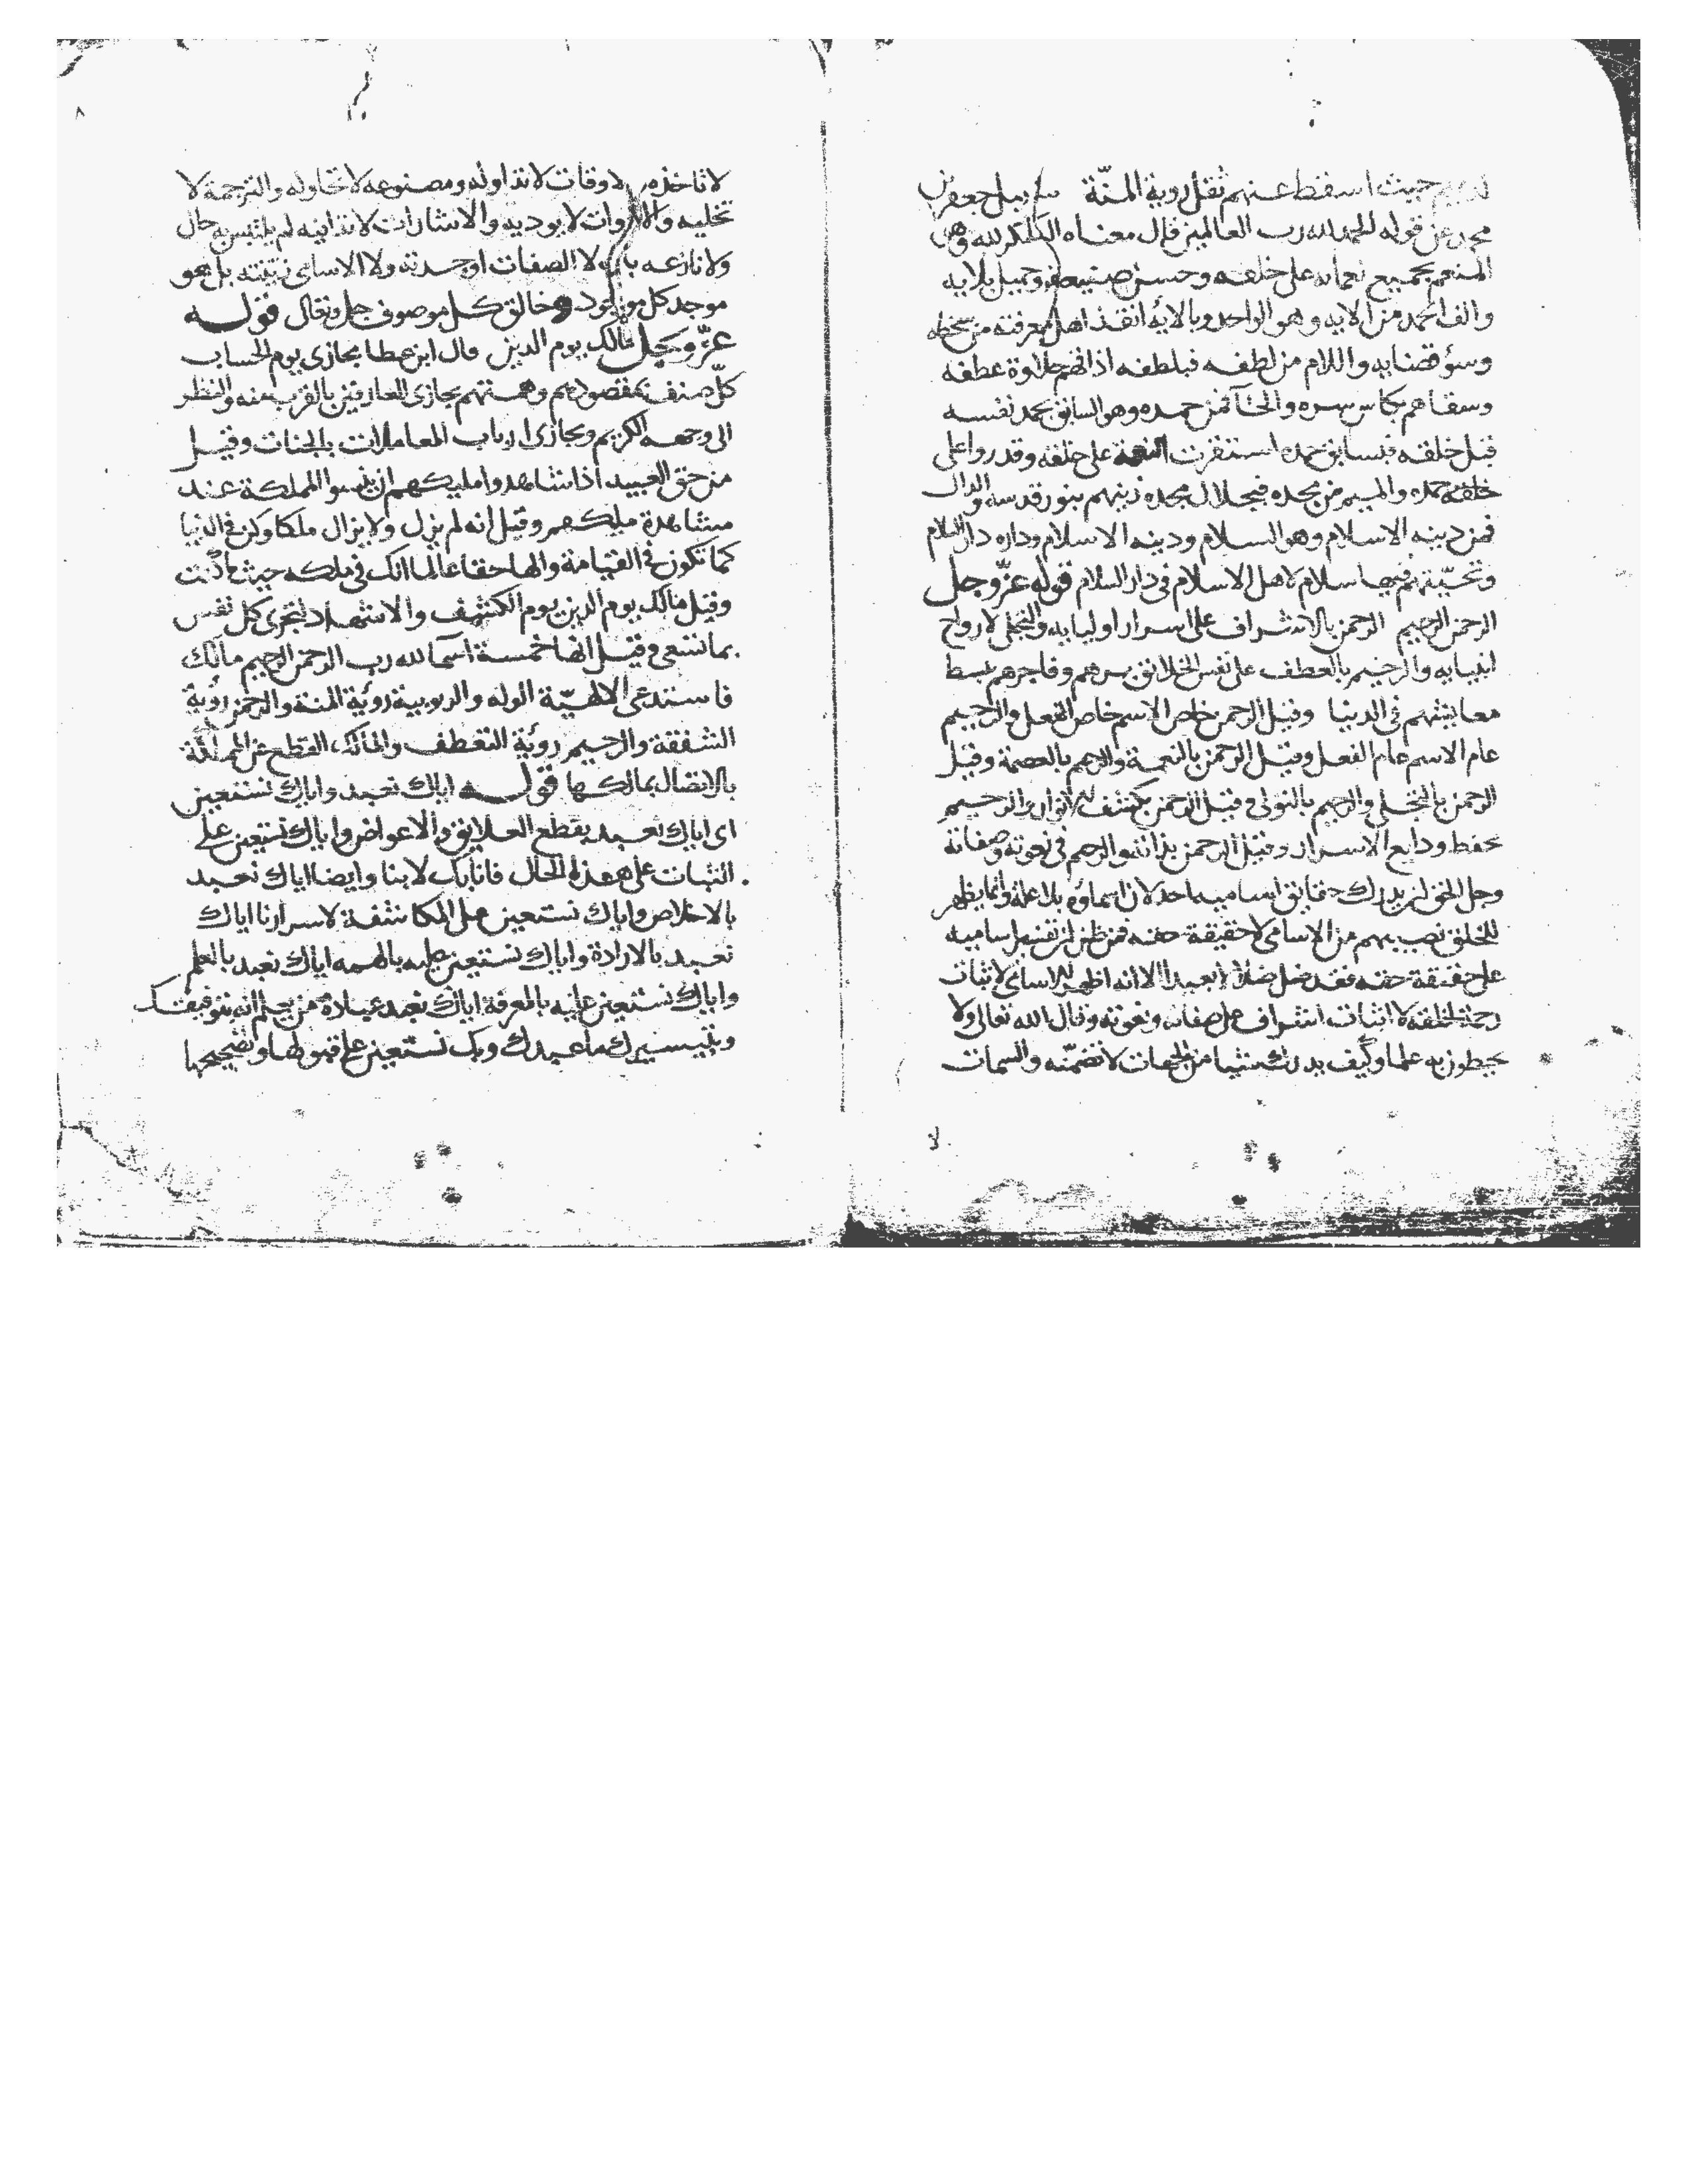 حيث اسقط عنهم ثقل روية المنّة جعفر بن
محمد عن قوله الحمد لله رب العالمين قال معناه الشكر لله وهو
المنعم بجميع نعمايه على خلقه وحسن صنيعه وجميل بلايه
والف الحمد من الايه وهو الواحد وبالايه انقذ اهل معرفته من سخطه
وسؤ قضايه واللام من لطفه فبلطفه اذاقهم حلاوة عطفه
وسقاهم بكاس سره والحآ فمن حمده وهو السابق بحمد نفسه
قبل خلقه فبسابق حمده استقرت النعمة على خلقه وقدروا على
خلقه حمده والميم من مجده فبجلال مجده زينهم بنور قدسه والدال
فمن دينه الاسلام وهو السلام ودينه الاسلام وداره دار السلام
وتحيّتهم فيها سلام لاهل الاسلام فى دار السلام قوله عزّ وجل
الرحمن الرحيم الرحمن بالاشراف على اسرار اوليايه والتجلى لارواح
انبيايه والرحيم بالعطف على نفس الخلائق برهم وفاجرهم ببسط
معايشهم فى الدنيا وقيل الرحمن خاص الاسم خاص الفعل والرحيم
عام الاسم عام الفعل وقيل الرحمن بالنعمة والرحيم بالعصمة وقيل
الرحمن بالتجلى والرحيم بالتولى وقيل الرحمن بكشف الانوار والرحيم
بحفظ ودايع الاسرار وقيل الرحمن بذاته والرحيم فى نعوته وصفاته
وجل الحق ان يدرك حقايق اساميه احد لان اسماؤه بلا علة وانما يظهر
للخلق نصيبهم من الاسامى لا حقيقة حقه فمن ظن
على حقيقة حقه فقد ضل ضلالا بعيدا الا انه اظهر الاسامى لاثبات
رحمة لخلقه لا اثبات اشراف على صفاته ونعوته وقال الله تعالى ولا
يحيطون به علما وكيف يدرك شيا من الجهات لا تضمّنه والسمات
لا تاخذه والاوقات لا تداوله ومصنوعه لا تحاوله والترجمة لا
تخليه والادوات لا توديه والاشارات لا تدانيه لم يلتبس به حال
ولا نازعه بال لا الصفات اوجدته ولا الاسامى زينته بل هو
موجد كل موجود وخالق كل موصوف جل وتعالى قوله
عزّ وجل مالك يوم الدين قال ابن عطا يجازى يوم الحساب
كلّ صنف بمقصودهم وهمتهم يجازى العارفين بالقرب منه والنظر
الى وجهه الكريم ويجازى ارباب المعاملات بالجنات وقيل
من حق العبيد اذا شاهدوا مليكهم ان ينسوا المملكة عند
مشاهدة مليكهم وقيل انه لم يزل ولا يزال ملكا وكن فى الدنيا
كما تكون فى القيامة والها حقا عالما انك فى ملكه حيث ما كنت
وقيل مالك يوم الدين يوم الكشف والاشهاد لتجزى كل نفس
بما تسعى وقيل انها خمسة اسما لله رب الرحمن الرحيم مالك
فاستدعى الالهيّة الوله والربوبية رؤية المنة والرحمن رؤية
الشفقة والرحيم رؤية التعطف والمالك القطع عن المملكة
بالاتصال بمالكها قوله اياك نعبد واياك نستعين
اى اياك نعبد بقطع العلايق والاعواض واياك نستعين على
الثبات على هذه الحال فانا بك لا بنا وايضا اياك نعبد
بالاخلاص واياك نستعين على المكاشفة لاسرارنا اياك
نعبد بالارادة واياك نستعين عليه بالهمه اياك نعبد بالعلم
واياك نستعين عليه بالمعرفة اياك نعبد عبادة من يعلم انه بتوفيقك
وتيسيرك ما عبدك وبك نستعين على قبولها وتصحيحها